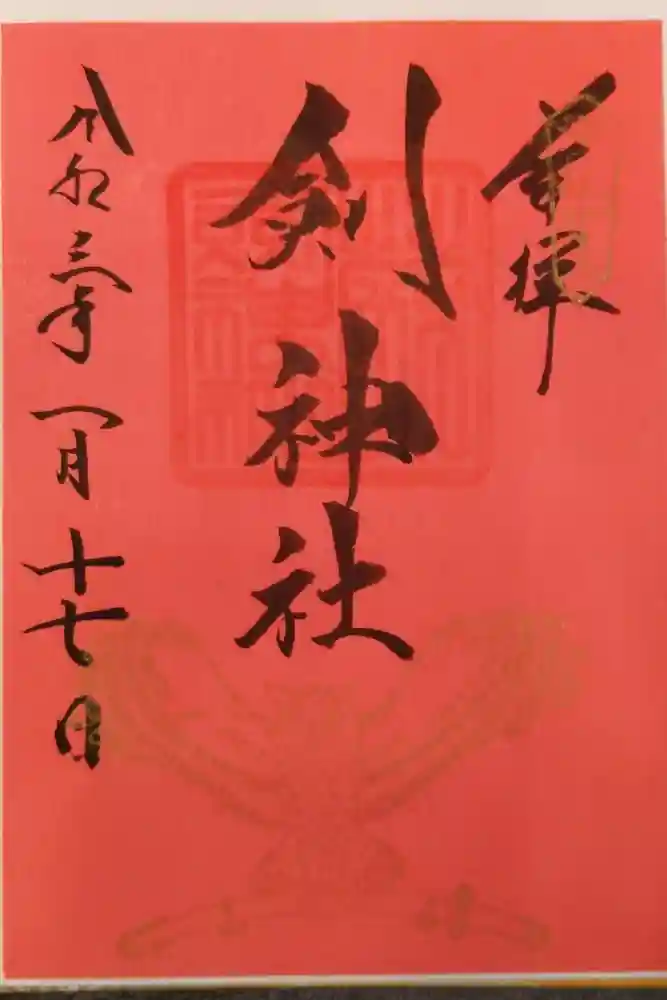 奉拝
剣神社
令和三年一月十七日